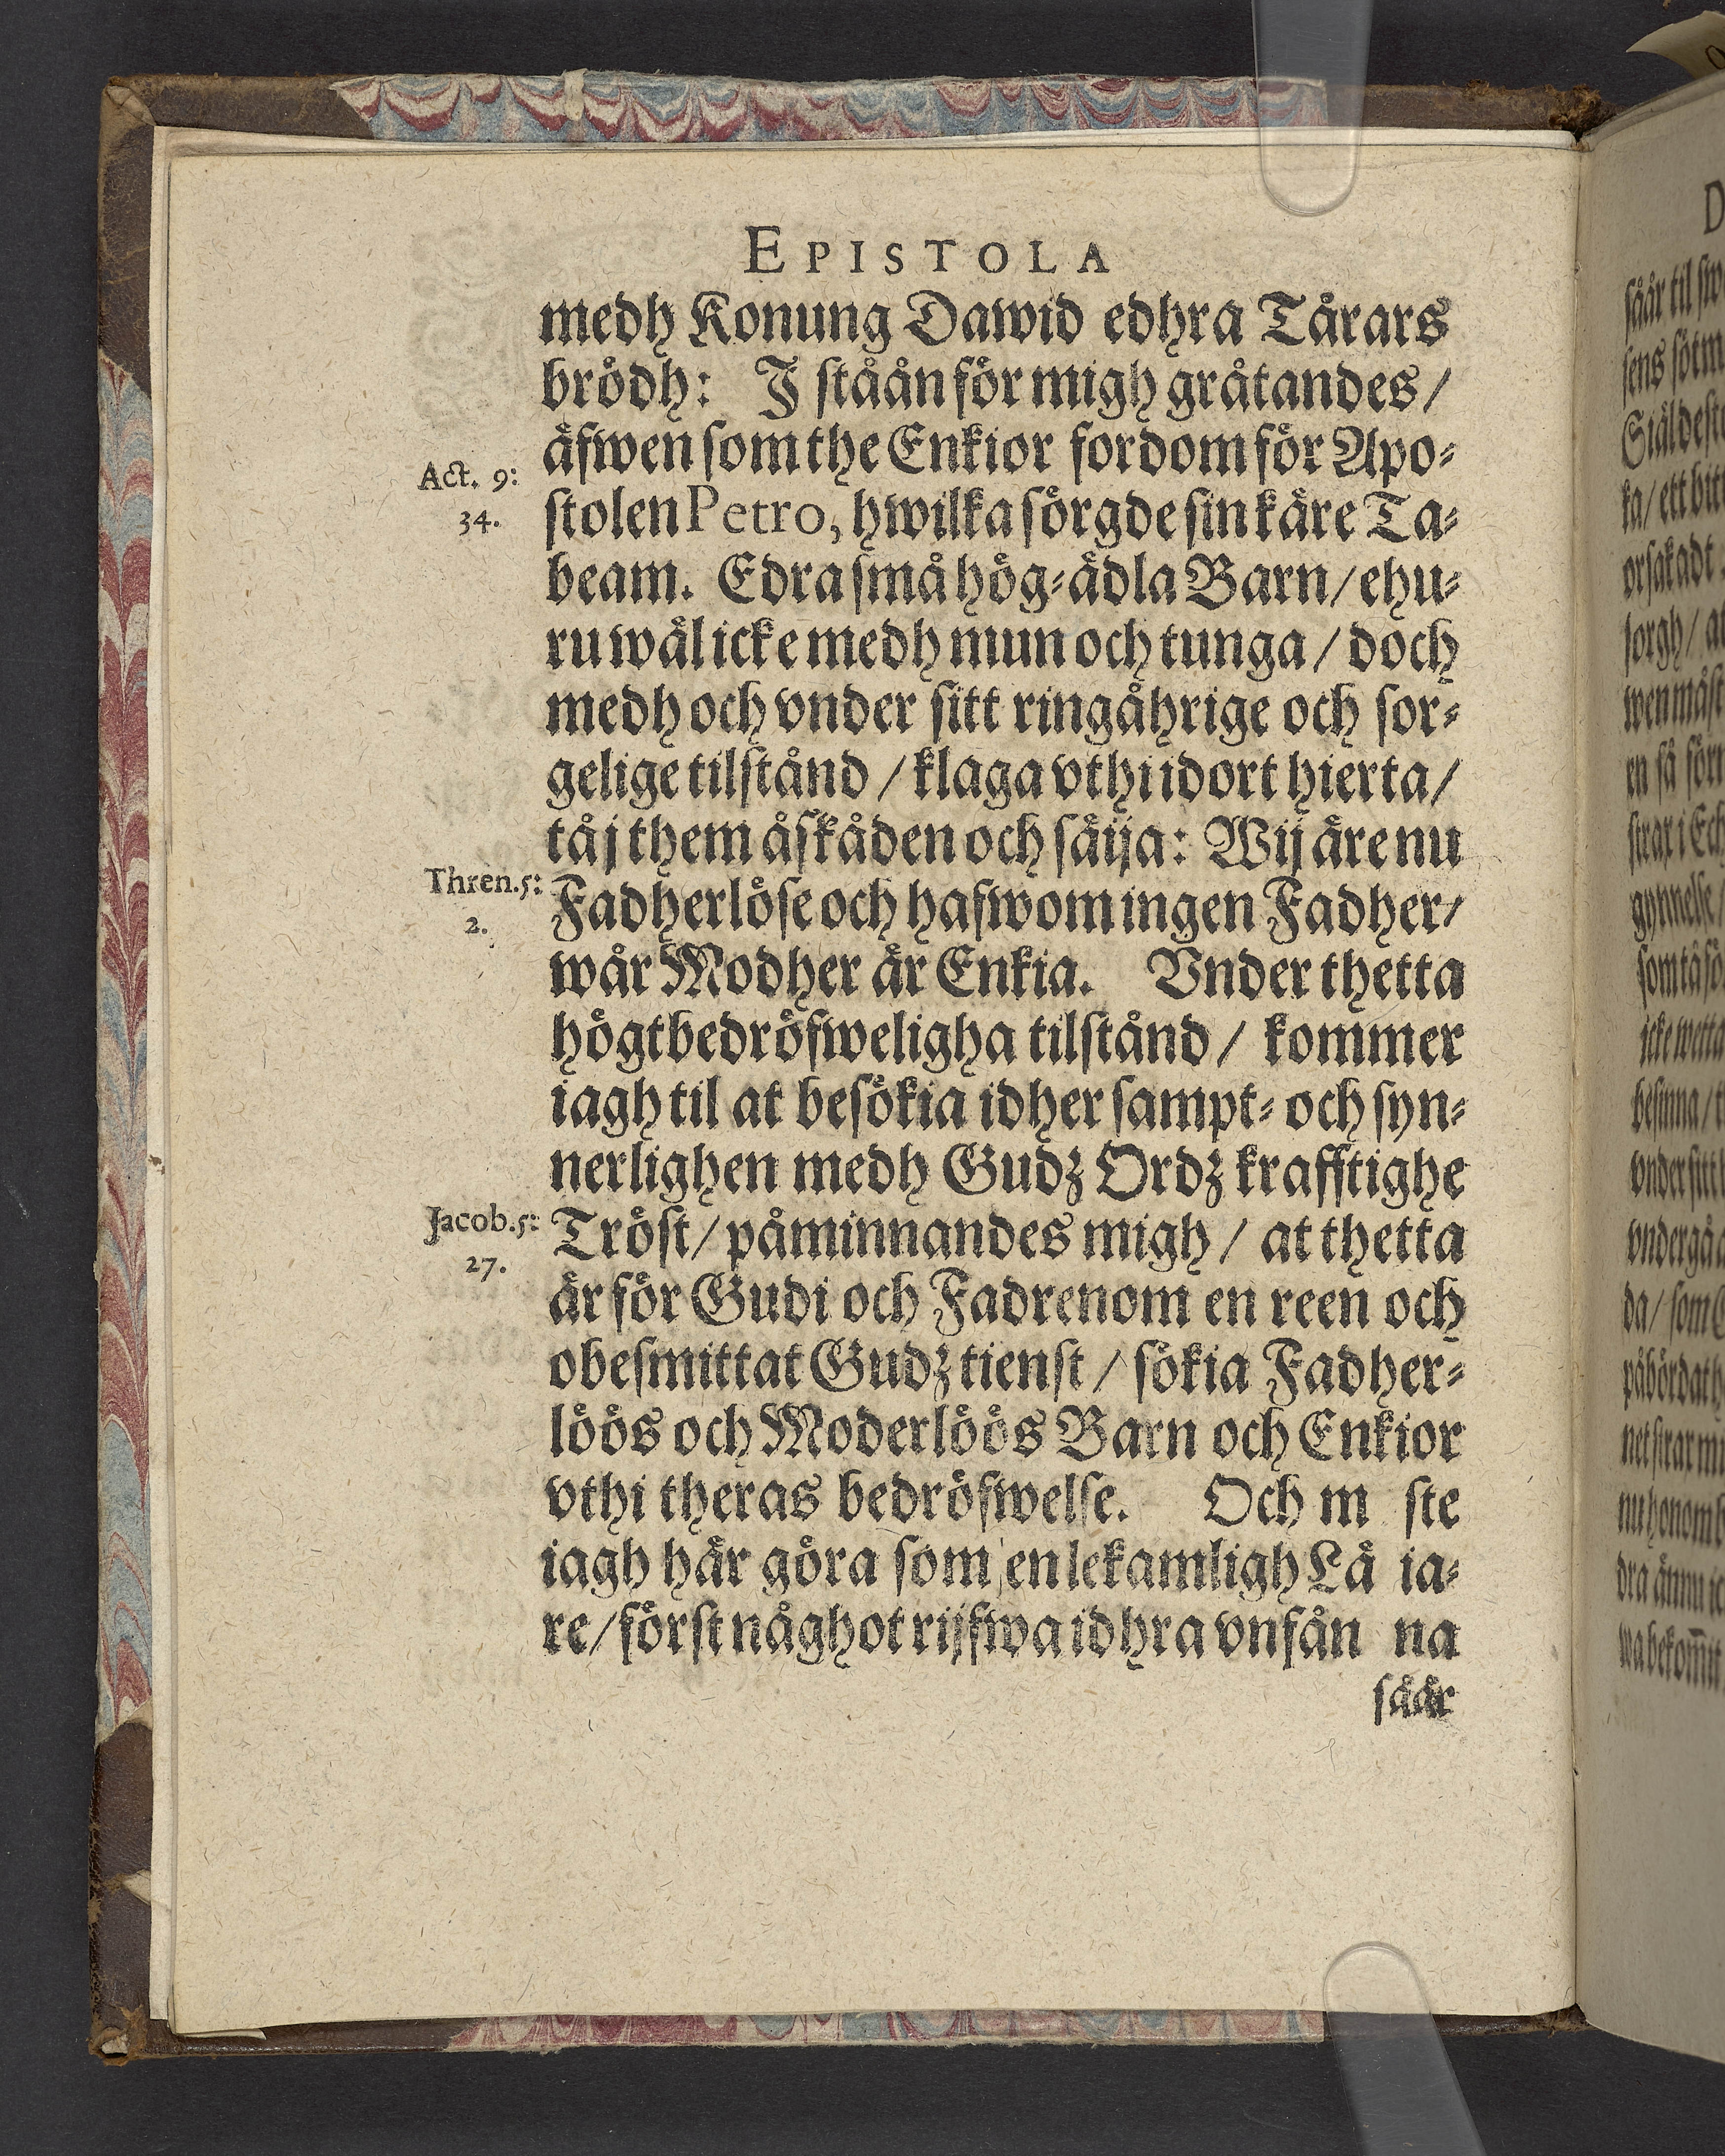 EPISTOLA
medh Konung Dawid edhra Tårars
brödh: J ståån för migh gråtandes /
äfwen som the Enkior fordom för Apo-
Act. 9:
34.
stolen Petro, hwilka sörgde sin käre Ta-
beam. Edra små hög-ädla Barn / ehu-
ru wäl icke medh mun och tunga / doch
medh och vnder sitt ringåhrige och sor-
gelige tilstånd / klaga vthi idort hierta /
tå j them åskåden och säija: Wij äre nu
Thren. 5:
2.
Fadherlöse och hafwom ingen Fadher /
wår Modher är Enkia. Vnder thetta
högtbedröfweligha tilstånd / kommer
iagh til at besökia idher sampt- och syn-
nerlighen medh Gudz Ordz krafftighe
Jacob. 5:
27.
Tröst / påminnandes migh / at thetta
är för Gudi och Fadrenom en reen och
obesmittat Gudz tienst / sökia Fadher-
löös och Moderlöös Barn och Enkior
vthi theras bedröfwelse. Och m ste
iagh här göra som en lekamligh Lä ia-
re / först någhot rijfwa idhra vnfån na
såår